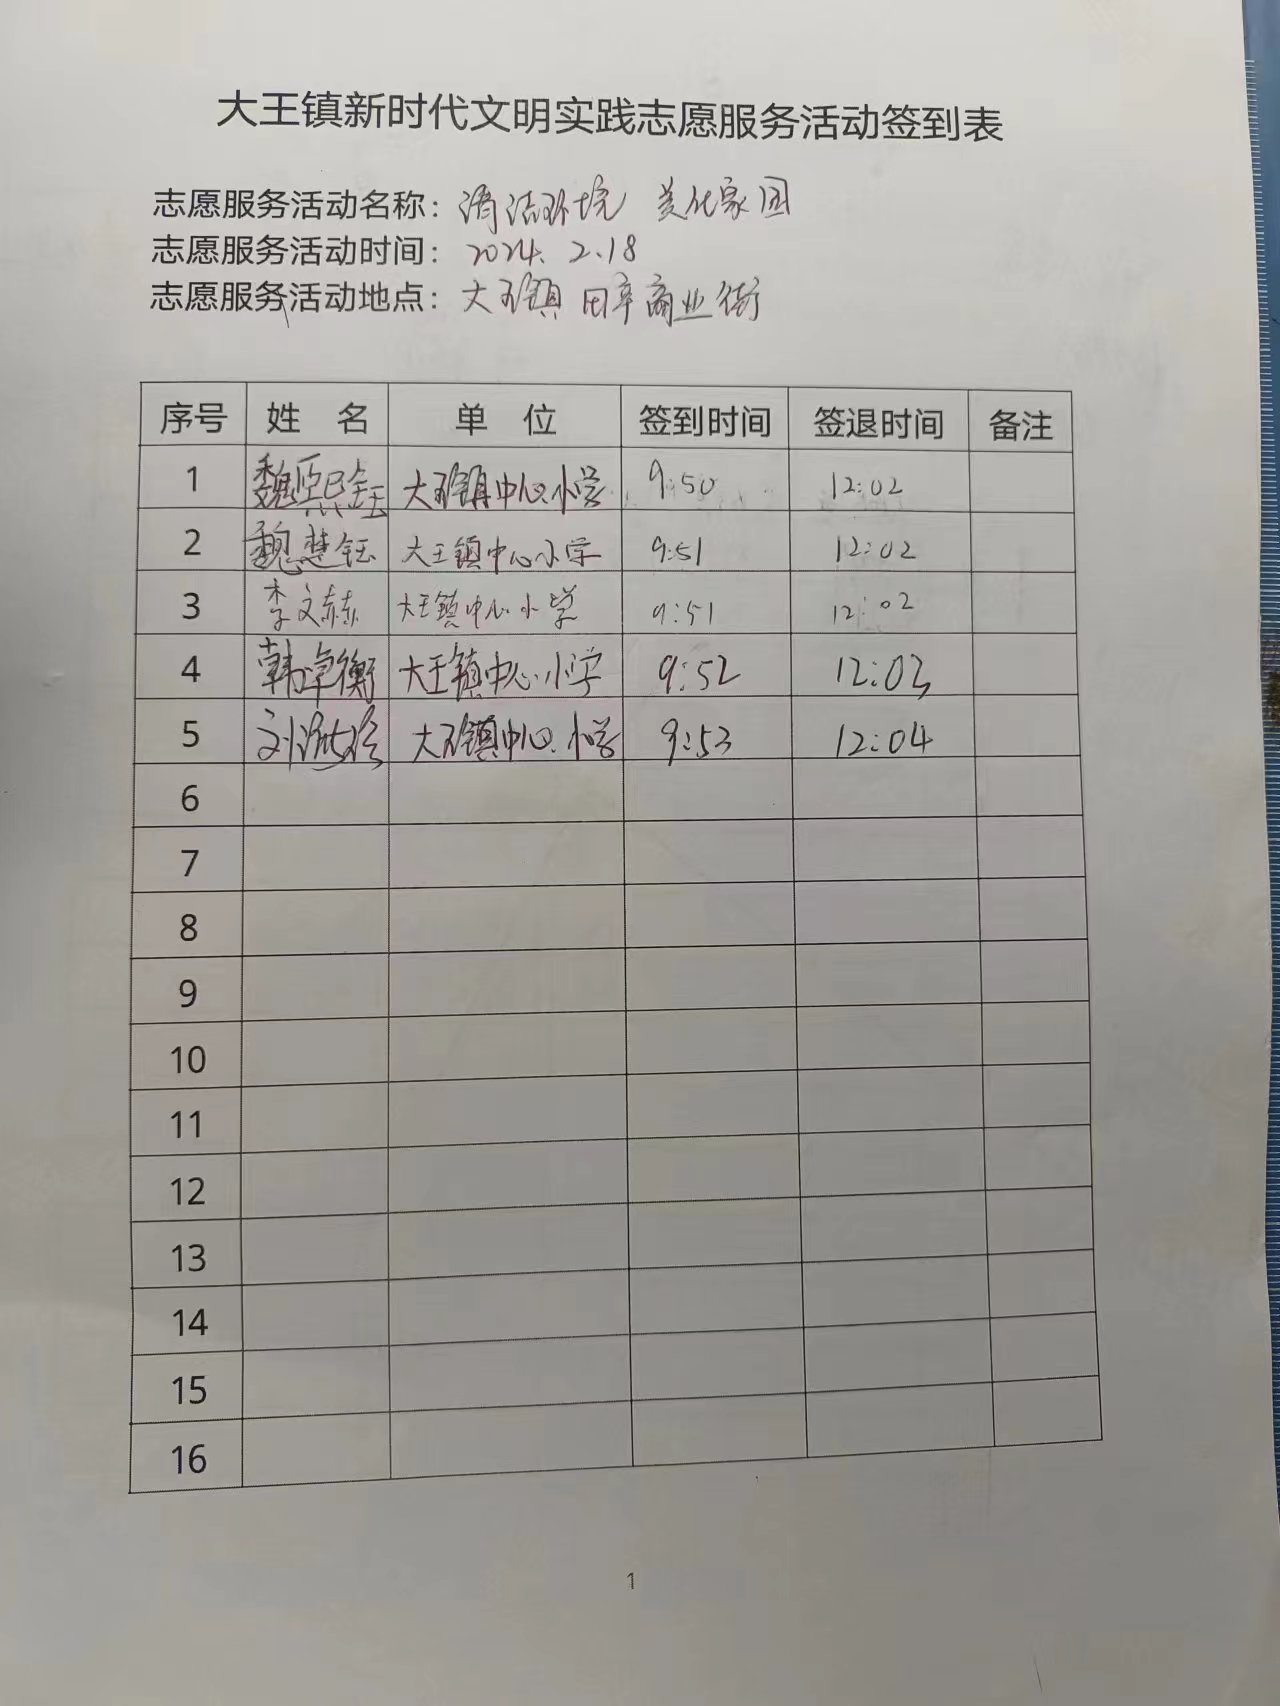 大王镇新时代文明实践志愿服务活动签到表
志愿服务活动名称：清洁环境 美化家园
志愿服务活动时间：2024.2.18
志愿服务活动地点：大王镇 田辛商业街
序号 姓 名 单 位 签到时间 签退时间 备注
1 魏熙钰 大王镇中心小学 9:50 12:02
2 魏楚钰 大王镇中心小学 9:51 12:02
3 李文赫 大王镇中心小学 9:51 12:02
4 韩卓衡 大王镇中心小学 9:52 12:03
5 刘 大王镇中心小学 9:53 12:04
6
7
8
9
10
11
12
13
14
15
16
1